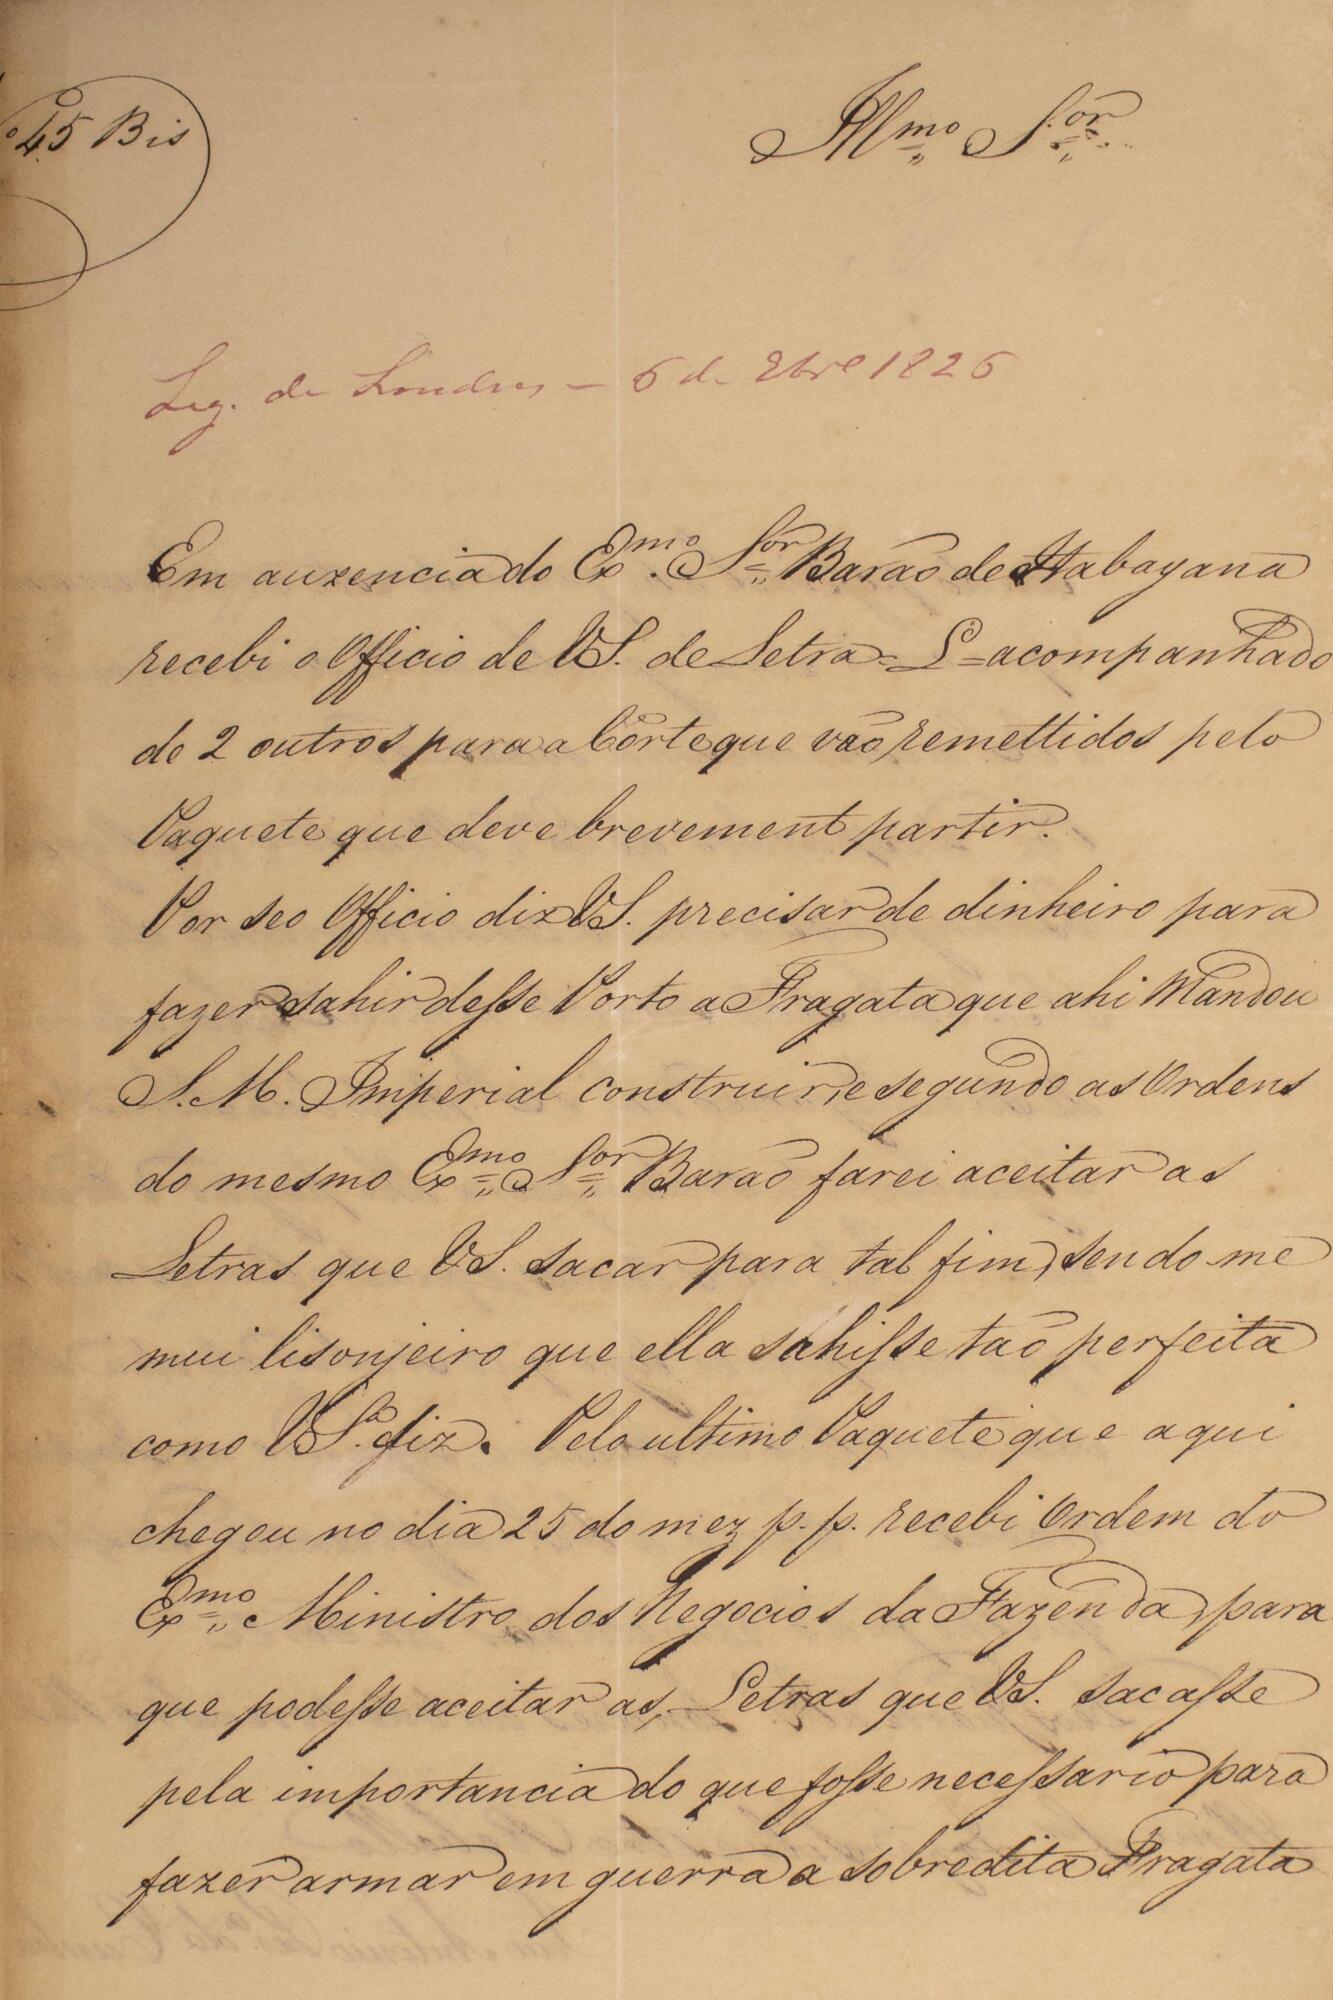 º 45 Bis
Illmo Sor
Leg. de Londres – 6 de 8bre 1826
Em auzencia do Exmo. Sor Barão de Itabayana
recebi o Officio de VS. de Letra = L = acompanhado
de 2 outros para a Côrte que vão remettidos pelo
Paquete que deve brevement partir.
Por seo Officio diz VS. precisar de dinheiro para
fazer sahir desse Porto a Fragata que ahi Mandou
S. M. Imperial construir, e segundo as Ordens
do mesmo Exmo Sor Barão farei aceitar as
Letras que VS. sacar para tal fim, sendo-me
mui lisonjeiro que ella sahisse tão perfeita
como VSª. diz. Pelo ultimo Paquete que aqui
chegou no dia 25 do mez p. p. recebi Ordem do
Exmo Ministro dos Negocios da Fazenda, para
que podesse aceitar as Letras que VS. sacasse
pela importancia do que fosse necessario para
fazer armar em guerra a sobredita Fragata